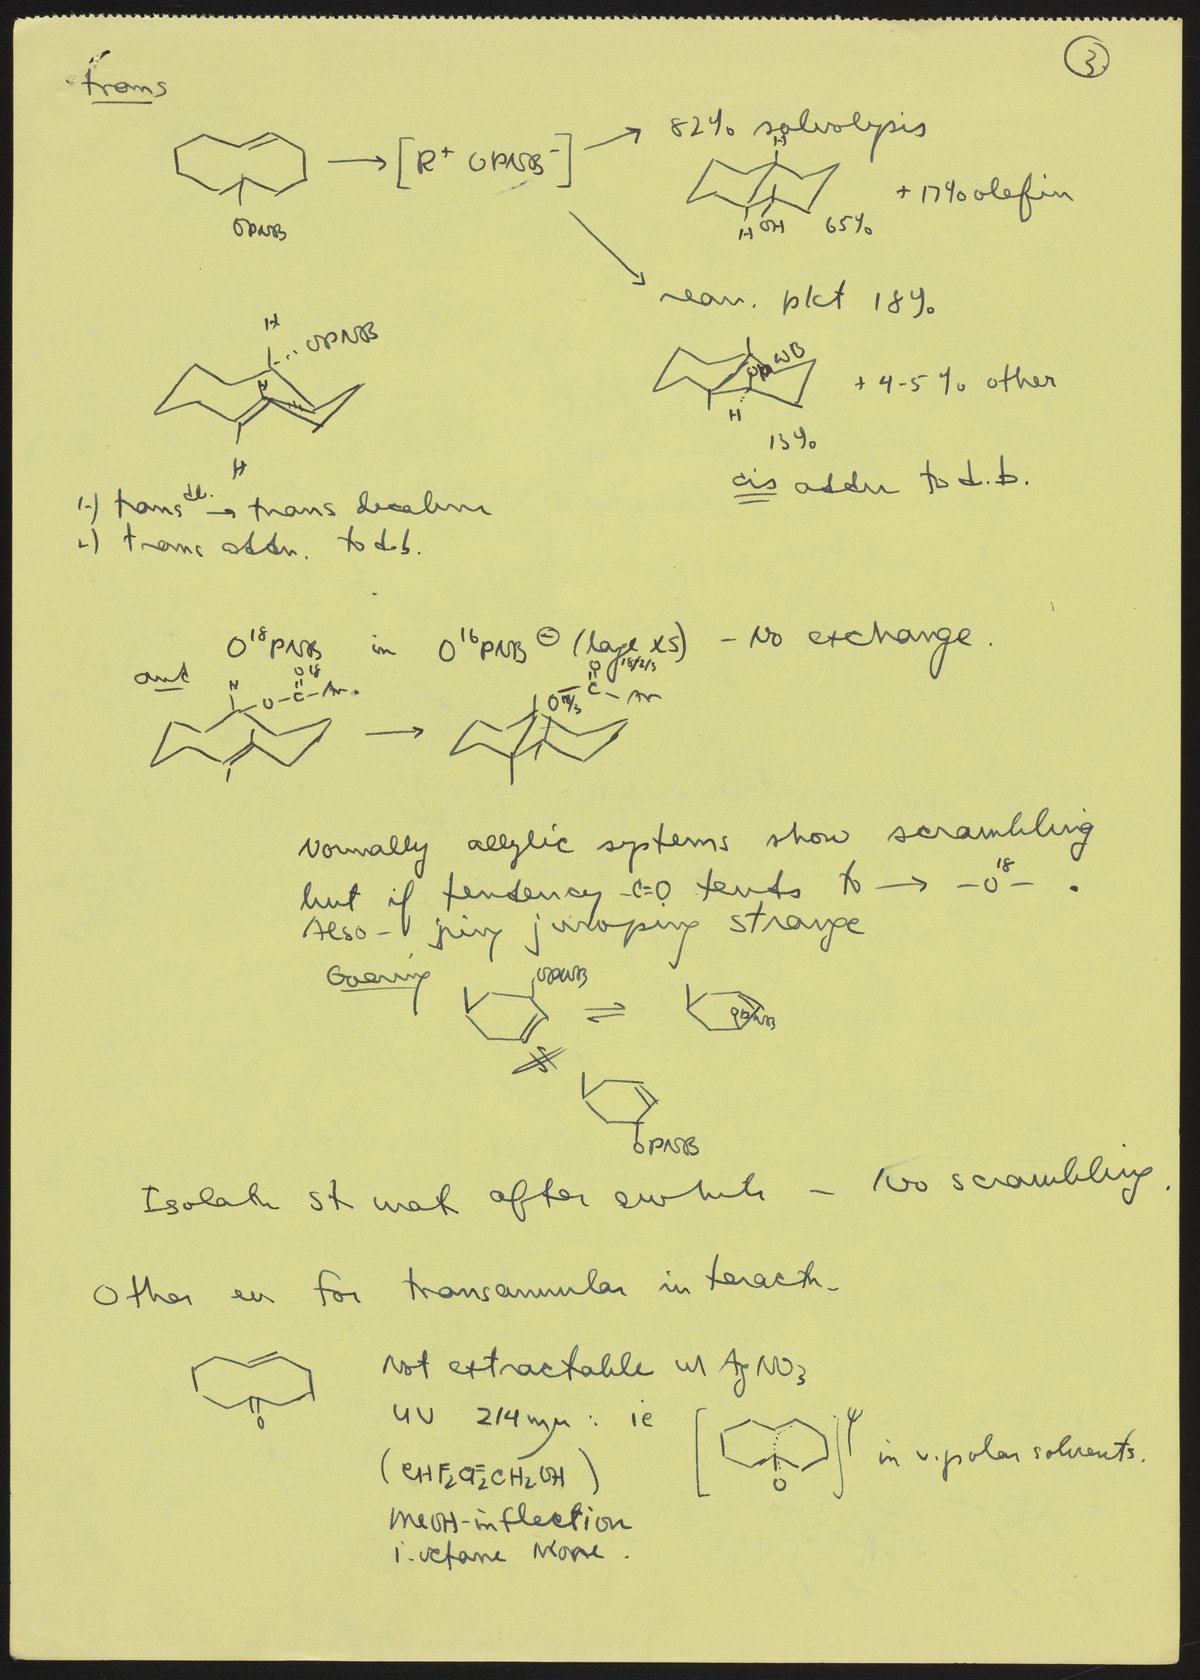 3
trans
82% solvolysis
[R+ OPNB-]
H
+ 17% olefin
OPNB
H OH 65%
rearr. pkt 18%
H
OPNB
OPNB
+ 4-5% other
H
H
13%
H
cis addn to d.b.
1.) trans d.b. → trans decalin
2.) trans addn. to d.b.
O18PNB in O16PNB ⊖ (large xs) - No exchange.
and
H
O-C-Ar.
O18
O 18/2/3
O18/3 C-Ar
Normally allylic systems show scrambling
but if tendency -C=O tends to → -O18- .
Also - ring jumping strange
Goering
OPNB
OPNB
OPNB
Isolate st mat after awhile - No scrambling.
Other ex for transannular interactn.
Not extractable w/ AgNO3
O
UV 214 mμ : ie
O
in v. polar solvents.
(CHF2CF2CH2OH)
MeOH - inflection
i-octane None.